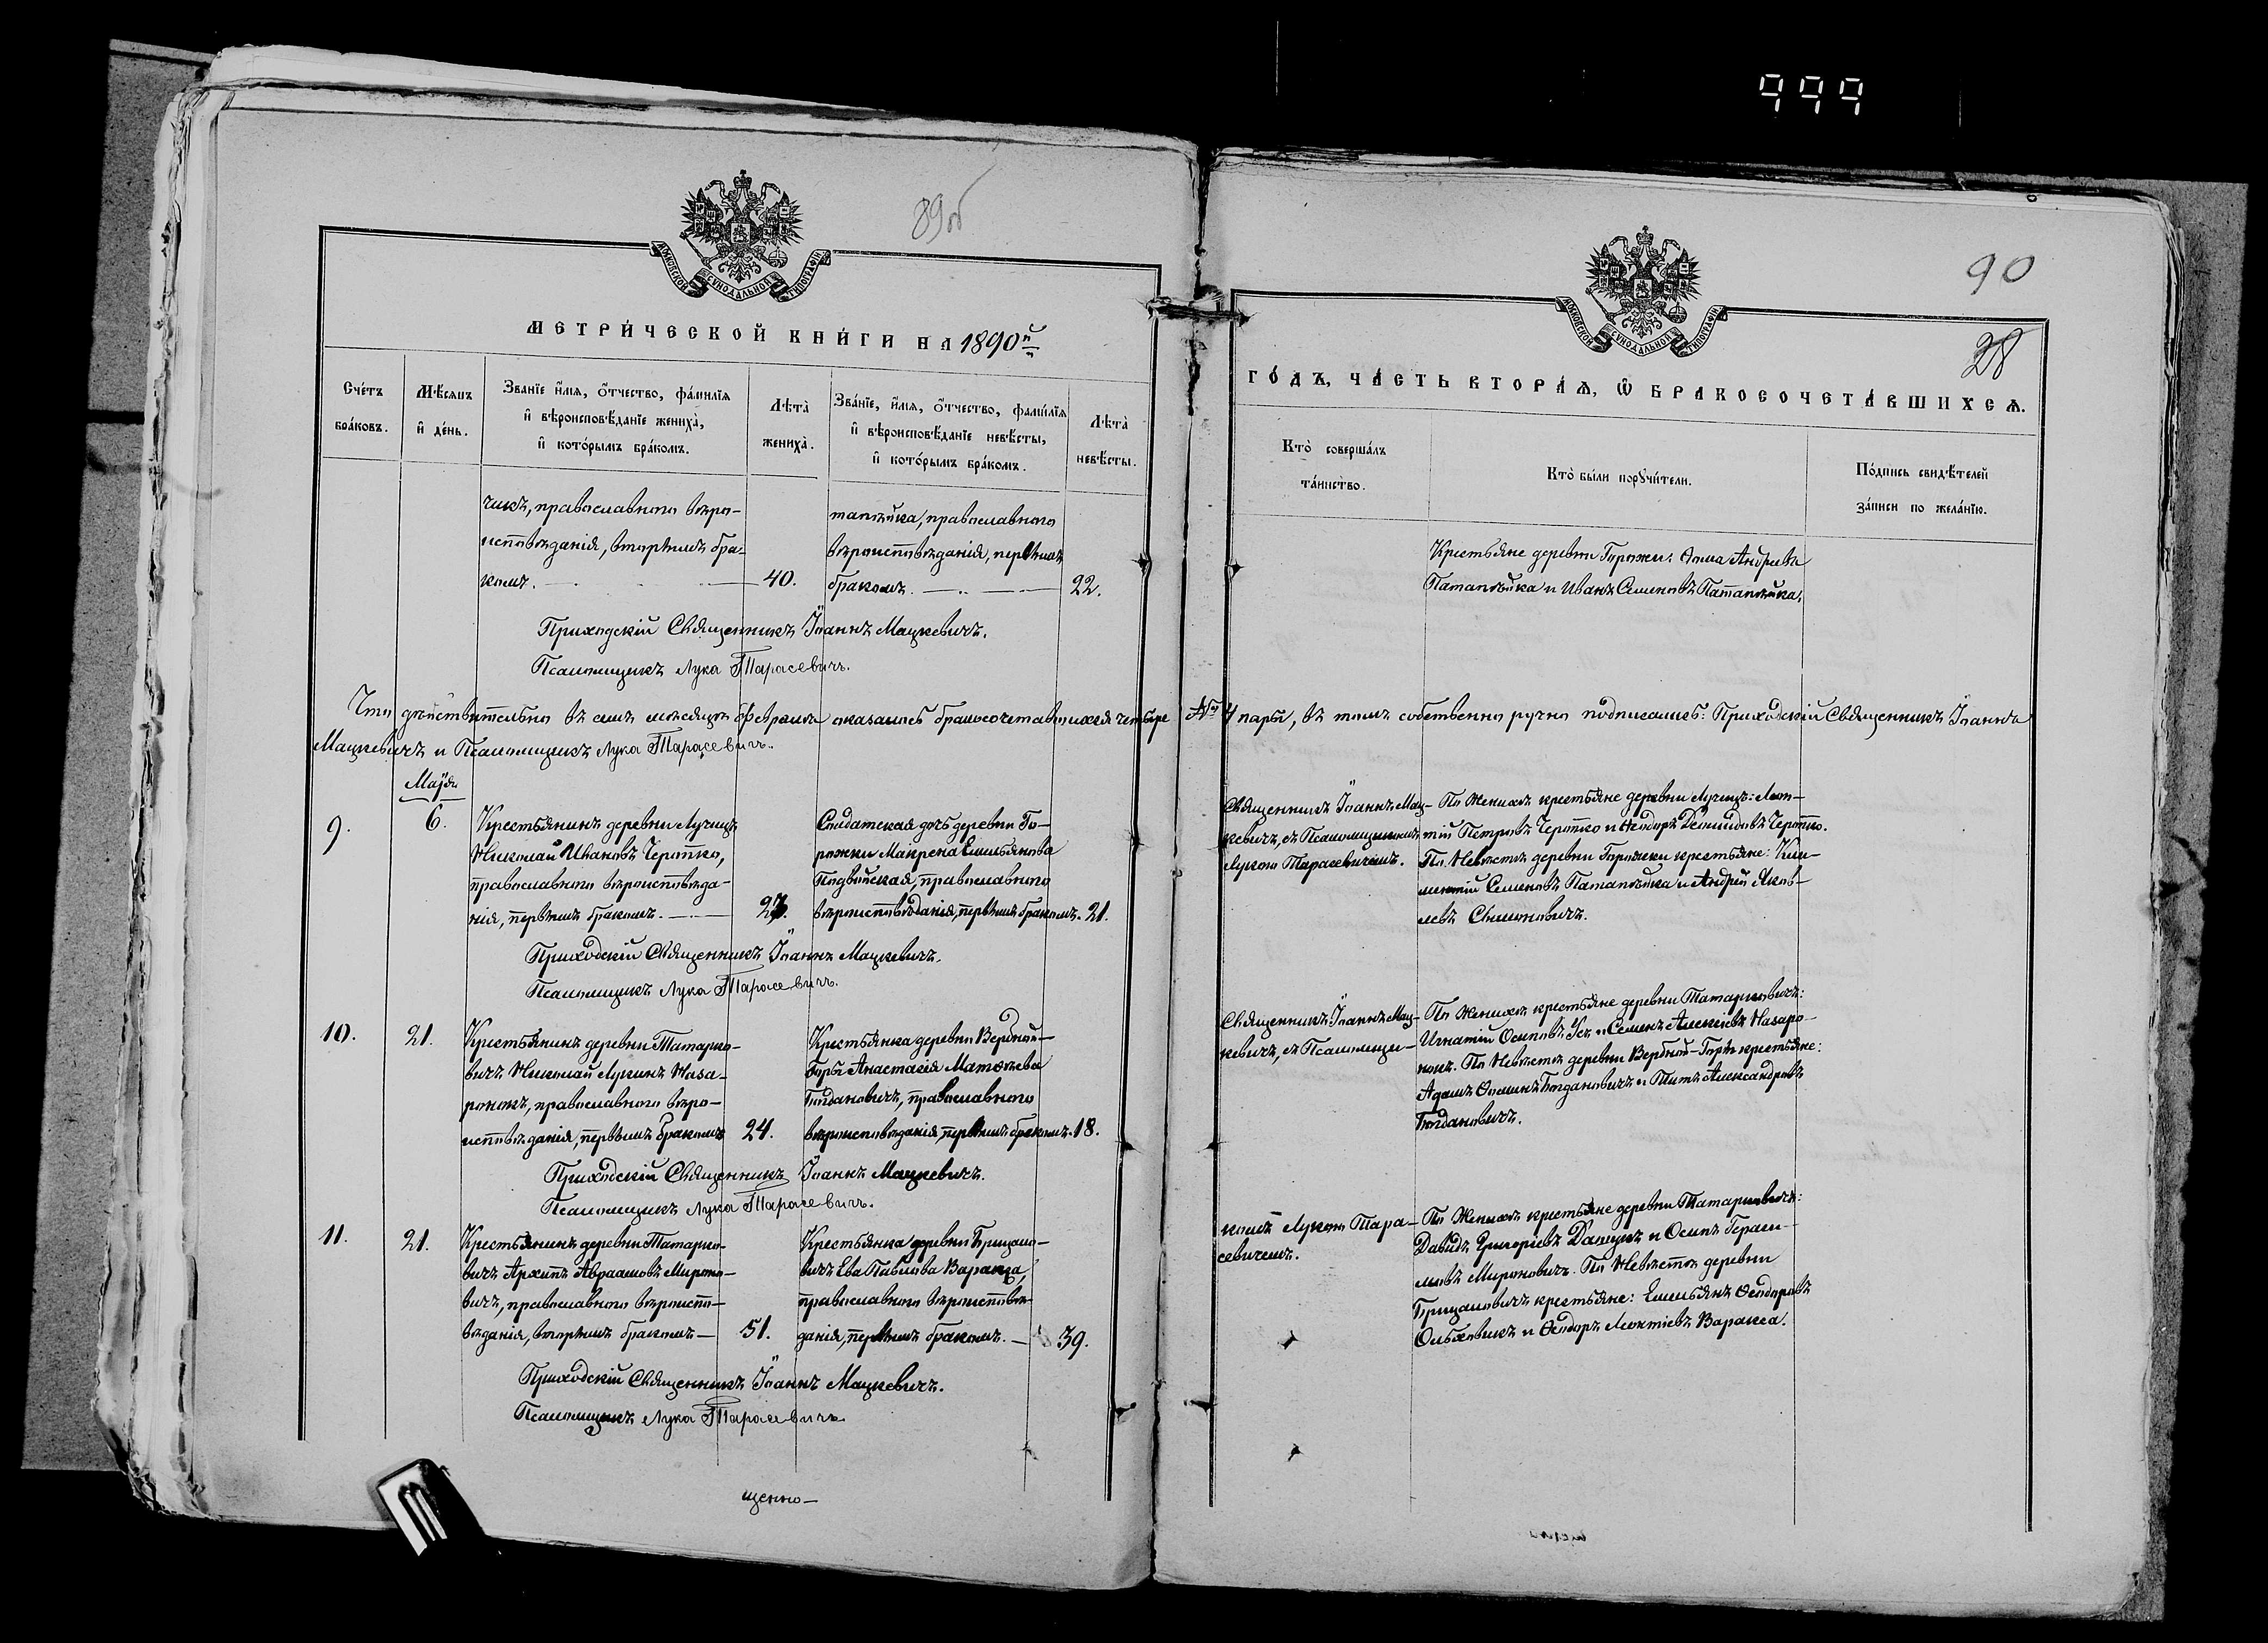 999
89об
90
28
МОСКОВСКОЙ СѴНОДАЛЬНОЙ ТИПОГРАФІИ
МОСКОВСКОЙ СѴНОДАЛЬНОЙ ТИПОГРАФІИ
МЕТРИ́ЧЕСКОЙ КНИ́ГИ НА 1890й
Сче́тъ бра́ковъ.
Мѣ́сяцъ и҆ де́нь.
Зва́нїе и҆́мѧ, ѻ҆́тчество, фамилїѧ
и҆ вѣроисповѣ́данїе жениха̀,
и҆ кото́рымъ бра́комъ.
Лѣ́та̀ жениха̀.
Зва́нїе, и҆́мѧ, ѻ҆́тчество, фамилїѧ
и҆ вѣроисповѣ́данїе невѣ́сты,
и҆ кото́рымъ бра́комъ.
Лѣ́та̀ невѣ́сты.
чикъ, православнаго вѣро-
исповѣданія, вторымъ бра-
комъ. — 40.
тапѣйка, православнаго
вѣроисповѣданія, первымъ
бракомъ. — 22.
Приходскій Священникъ Іоаннъ Мацкевичъ.
Псаломщикъ Лука Тарасевичъ.
Что дѣйствительно въ семъ мѣсяцѣ февралѣ оказалось бракосочетавшихся четыре
Мацкевичъ и Псаломщикъ Лука Тарасевичъ.
Маія
9.
6.
Крестьянинъ деревни Лучицъ
Николай Ивановъ Черотко,
православнаго вѣроисповѣда-
нія, первымъ бракомъ. — 27.
Солдатская дочь деревни Го-
рожки Макрена Емельянова
Подвойская, православнаго
вѣроисповѣданія, первымъ бракомъ. 21.
Приходскій Священникъ Іоаннъ Мацкевичъ.
Псаломщикъ Лука Тарасевичъ.
10.
21.
Крестьянинъ деревни Татарко-
вичъ Николай Лукинъ Наза-
ронокъ, православнаго вѣро-
исповѣданія, первымъ бракомъ 24.
Крестьянка деревни Вербной-
Горы Анастасія Матѳѣева
Богдановичъ, православнаго
вѣроисповѣданія, первымъ бракомъ. 18.
Приходскій Священникъ Іоаннъ Мацкевичъ.
Псаломщикъ Лука Тарасевичъ.
11.
21.
Крестьянинъ деревни Татарко-
вичъ Архипъ Авраамовъ Мироно-
вичъ, православнаго вѣроиспо-
вѣданія, вторымъ бракомъ — 51.
Крестьянка деревни Брицало-
вичъ Ева Павлова Варакса,
православнаго вѣроисповѣ-
данія, первымъ бракомъ. — 39.
Приходскій Священникъ Іоаннъ Мацкевичъ.
Псаломщикъ Лука Тарасевичъ.
щенно-
ГО́ДЪ, ЧА́СТЬ ВТОРА́Ѧ, Ѡ҆ БРАКОСОЧЕТА́ВШИХСѦ.
Кто̀ соверша́лъ
та́инство.
Кто̀ бы́ли порꙋчи́тели.
По́дпись свидѣ́телей
за́писи по жела́нїю.
Крестьяне деревни Горожки: Ѳома Андреевъ
Патапѣйка и Иванъ Семеновъ Патапѣйка.
4 пары, въ томъ собственно ручно подписались: Приходскій Священникъ Іоаннъ
Священникъ Іоаннъ Мац-
кевичъ, съ Псаломщикомъ
Лукою Тарасевичемъ.
По Женихѣ крестьяне деревни Лучицъ: Леон-
тій Петровъ Черотко и Ѳеодоръ Демидовъ Черотко.
По Невѣстѣ деревни Горожки крестьяне: Кли-
ментій Семеновъ Патапѣйка и Андрей Яков-
левъ Симоновичъ.
Священникъ Іоаннъ Мац-
кевичъ, съ Псаломщи-
По Женихѣ крестьяне деревни Татарковичъ:
Игнатій Осиповъ Усъ и Семенъ Алексѣевъ Назаро-
нокъ. По Невѣстѣ деревни Вербной-Горы крестьяне:
Адамъ Ѳоминъ Богдановичъ и Титъ Александровъ
Богдановичъ.
комъ Лукою Тара-
севичемъ.
По Женихѣ крестьяне деревни Татарковичъ:
Давидъ Григорьевъ Данцукъ и Осипъ Гераси-
мовъ Мироновичъ. По Невѣстѣ деревни
Брицаловичъ крестьяне: Емельянъ Ѳеодоровъ
Ольховикъ и Ѳеодоръ Леонтіевъ Варакса.